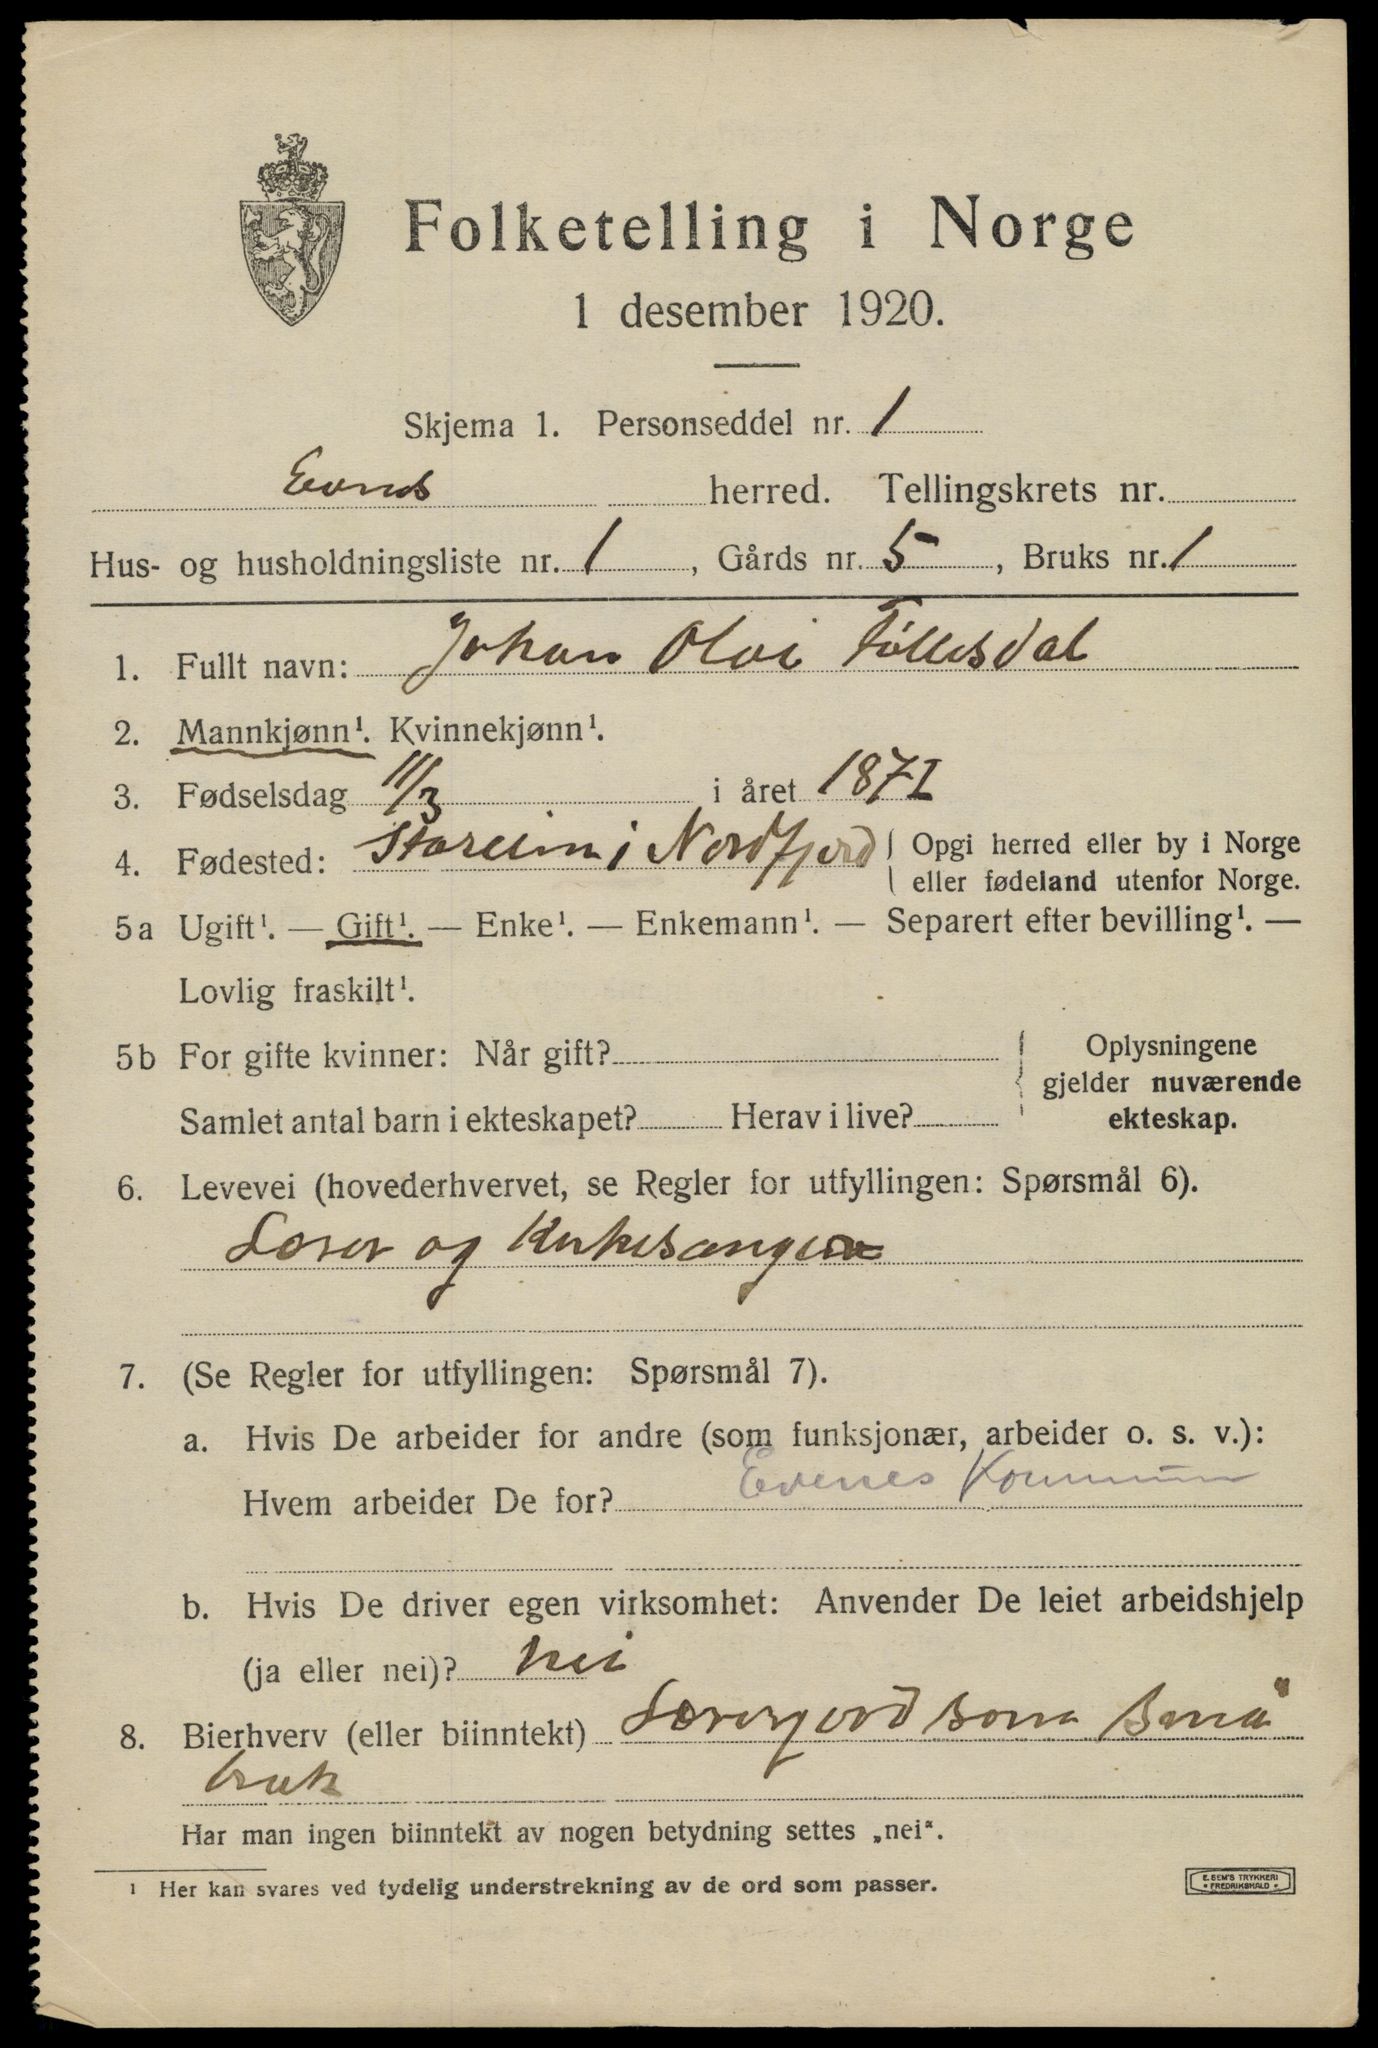 Folketelling i Norge
1 desember 1920.
Skjema 1. Personseddel nr. 1
Evenes herred. Tellingskrets nr.
Hus- og husholdningsliste nr. 1, Gårds nr. 5, Bruks nr. 1
1. Fullt navn: Johan Olai Föllesdal
2. Mannkjønn¹. Kvinnekjønn¹.
3. Fødselsdag 11/3 i året 1871
4. Fødested: Stareim i Nordfjord Opgi herred eller by i Norge
eller fødeland utenfor Norge.
5a Ugift¹. — Gift¹. — Enke¹. — Enkemann¹. — Separert efter bevilling¹. —
Lovlig fraskilt¹.
5b For gifte kvinner: Når gift?
Samlet antal barn i ekteskapet? Herav i live?
Oplysningene
gjelder nuværende
ekteskap.
6. Levevei (hovederhvervet, se Regler for utfyllingen: Spørsmål 6).
Lærer og Kirkesanger
7. (Se Regler for utfyllingen: Spørsmål 7).
a. Hvis De arbeider for andre (som funksjonær, arbeider o. s. v.):
Hvem arbeider De for? Evenes Kommune
b. Hvis De driver egen virksomhet: Anvender De leiet arbeidshjelp
(ja eller nei)? nei
8. Bierhverv (eller biinntekt) Lærerjord som Små"
bruk
Har man ingen biinntekt av nogen betydning settes „nei".
¹ Her kan svares ved tydelig understrekning av de ord som passer.
E. SEM'S TRYKKERI
• FREDRIKSHALD •